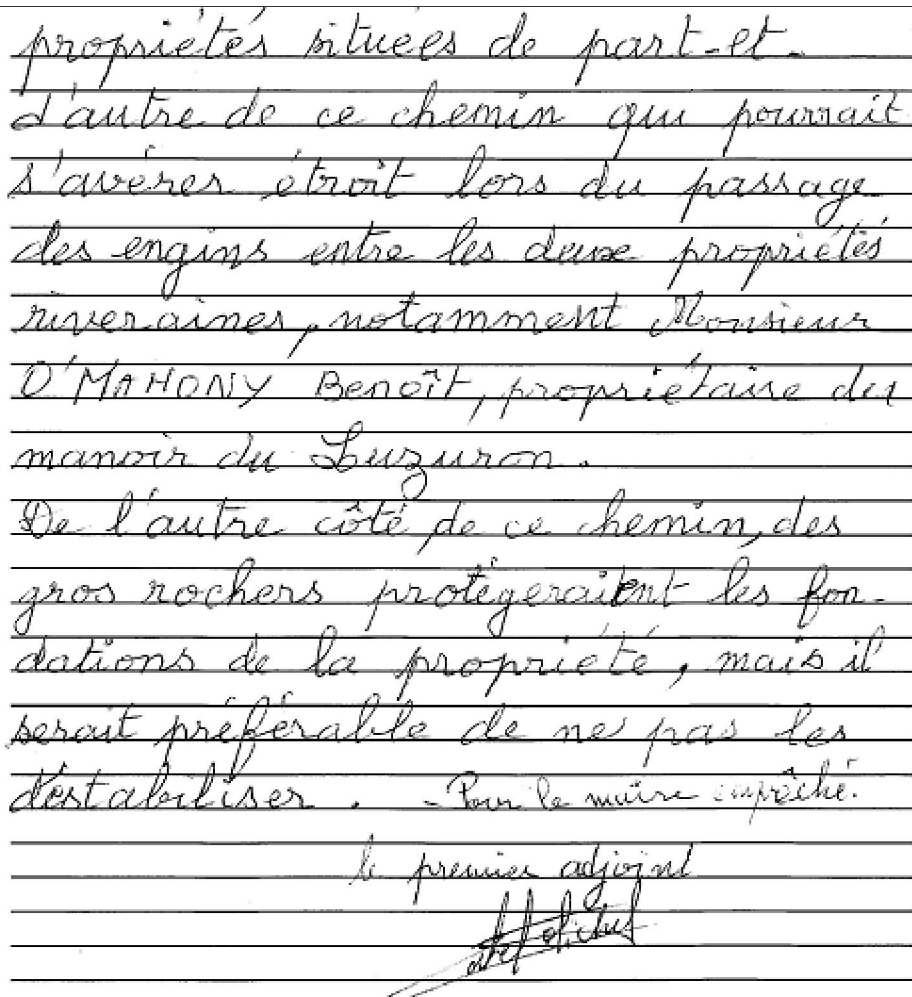 propriétés situées de part-et-
d'autre de ce chemin qui pourrait
s'avérer étroit lors du passage
des engins entre les deux propriétés
riveraines, notamment Monsieur
O'MAHONY Benoît, propriétaire du
manoir du Luzuron.
De l'autre côté de ce chemin, des
gros rochers protégeraient les fon-
dations de la propriété, mais il
serait préférable de ne pas les
déstabiliser. - Pour le maire empêché.
le premier adjoint